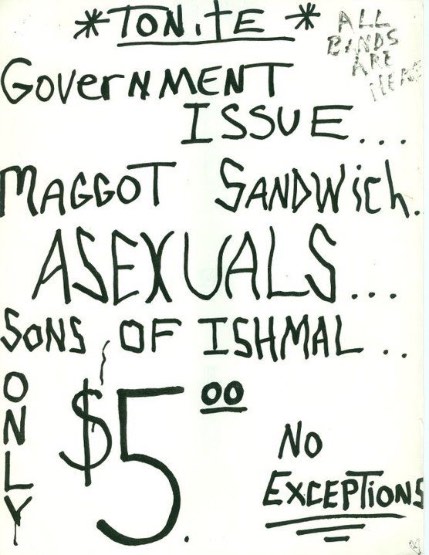 *TONiTE*
ALL
BANDS
ARE
HERE
GoverNMENT
ISSUE...
MAGGOT SANDWich.
ASEXUALS...
SONS OF ISHMAL..
ONLY
$5.00
NO
EXCEPTIONS